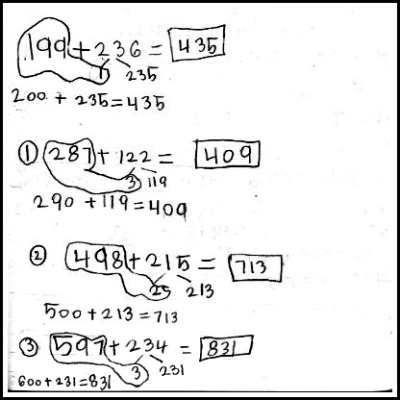 199 + 236 = 435
1 235
200 + 235 = 435
① 287 + 122 = 409
3 119
290 + 119 = 409
② 498 + 215 = 713
213
500 + 213 = 713
③ 597 + 234 = 831
3 231
600 + 231 = 831